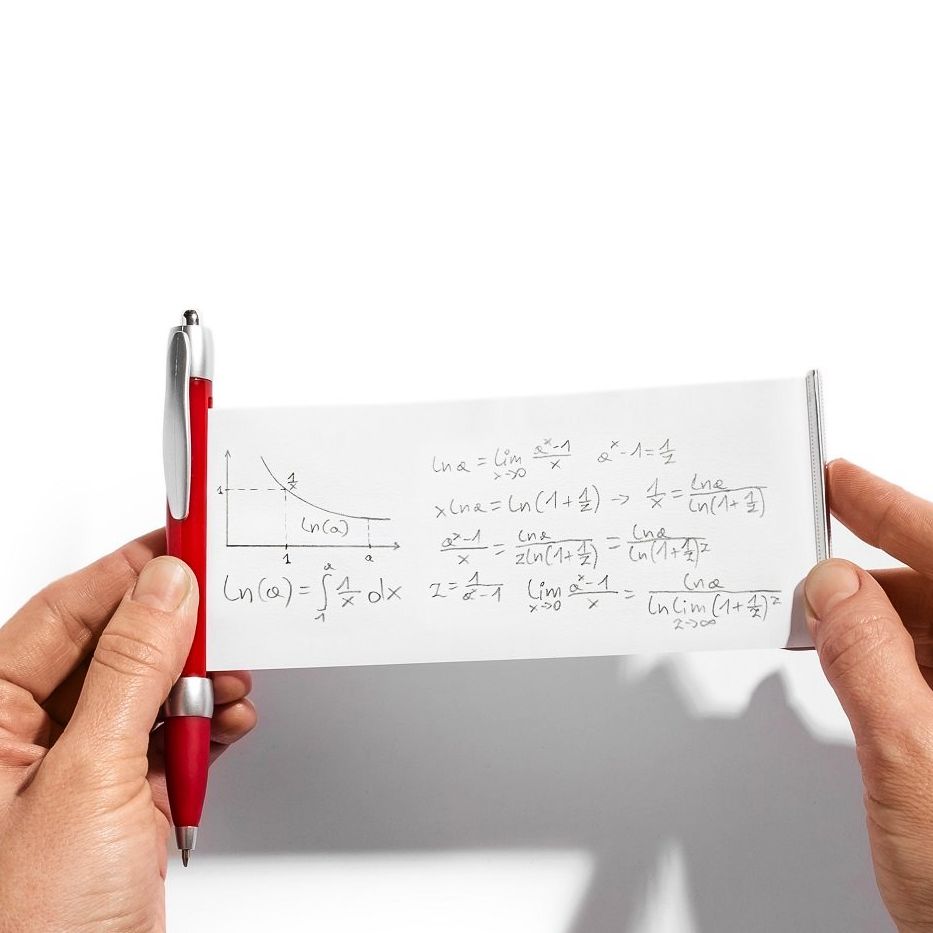 1
1/x
ln(a)
1 a
ln(a) = ∫₁ᵃ 1/x dx
ln a = lim x→0 (aˣ-1)/x aˣ-1 = 1/z
x ln a = ln(1+1/z) → 1/x = ln a/ln(1+1/z)
(aˣ-1)/x = ln a/(z ln(1+1/z)) = ln a/ln(1+1/z)ᶻ
z = 1/(aˣ-1) lim x→0 (aˣ-1)/x = ln a/(ln lim z→∞ (1+1/z)ᶻ)